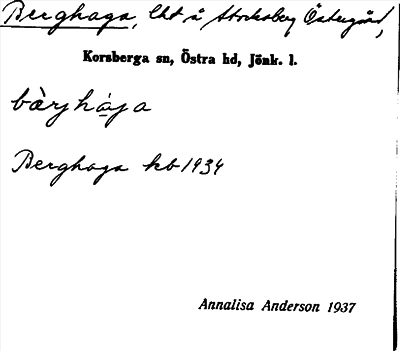 Berghaga, lht å Stocksberg Östergård,
Korsberga sn, Östra hd, Jönk. l.
bàrjhága
Berghaga kb 1934
Annalisa Anderson 1937